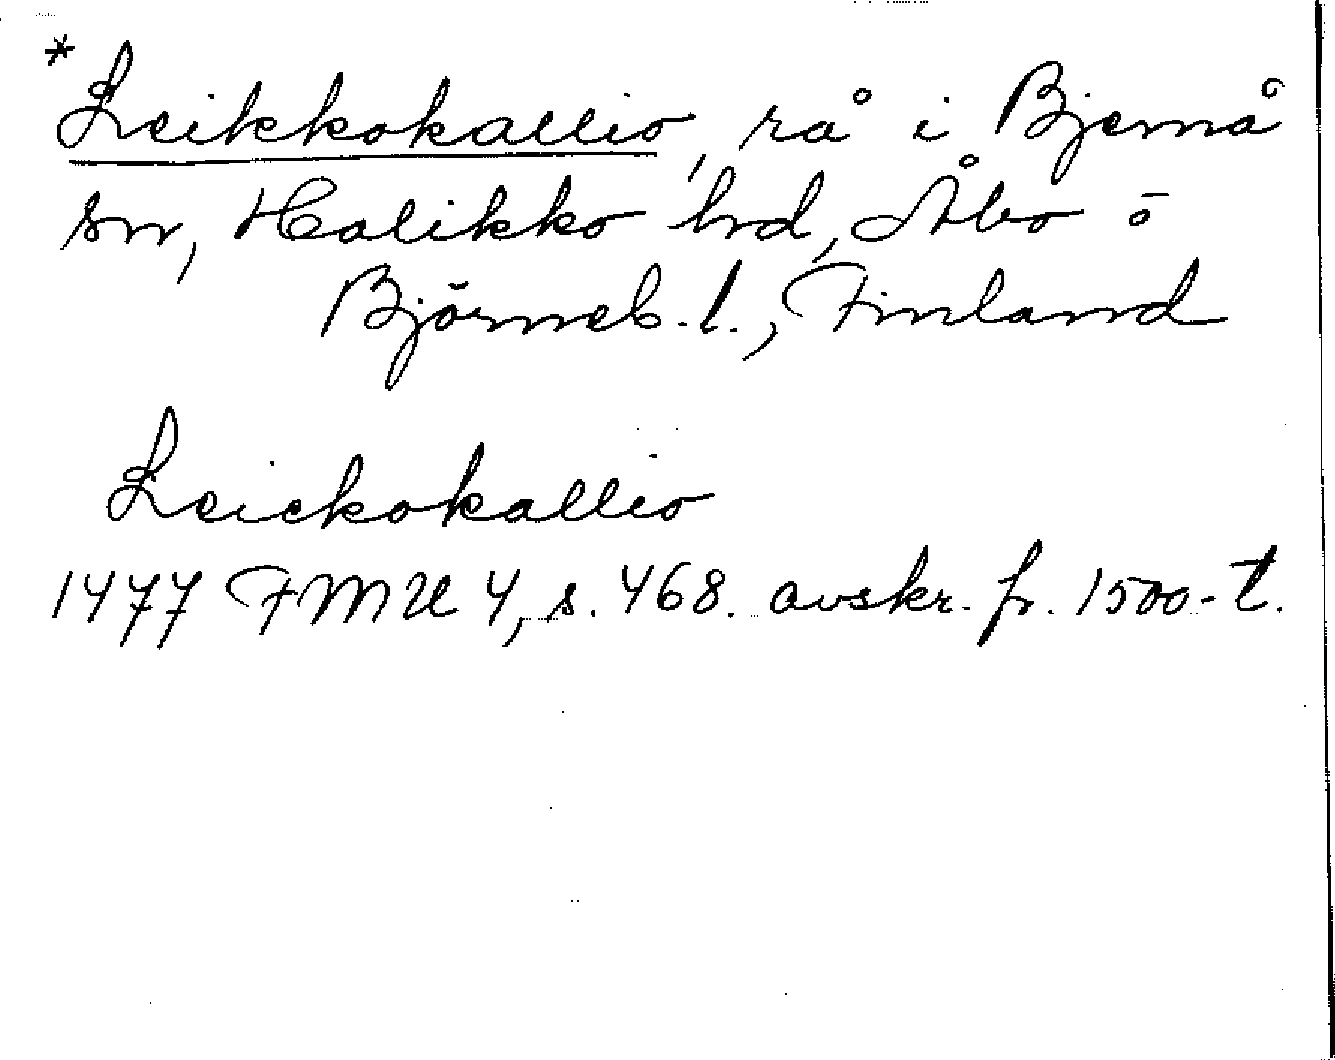 *Leikkokallio, rå i Bjernå
sn, Halikko hrd, Åbo o
Björneb. l., Finland
Leickokallio
1477 FMU 4, s. 468. avskr. fr. 1500-t.